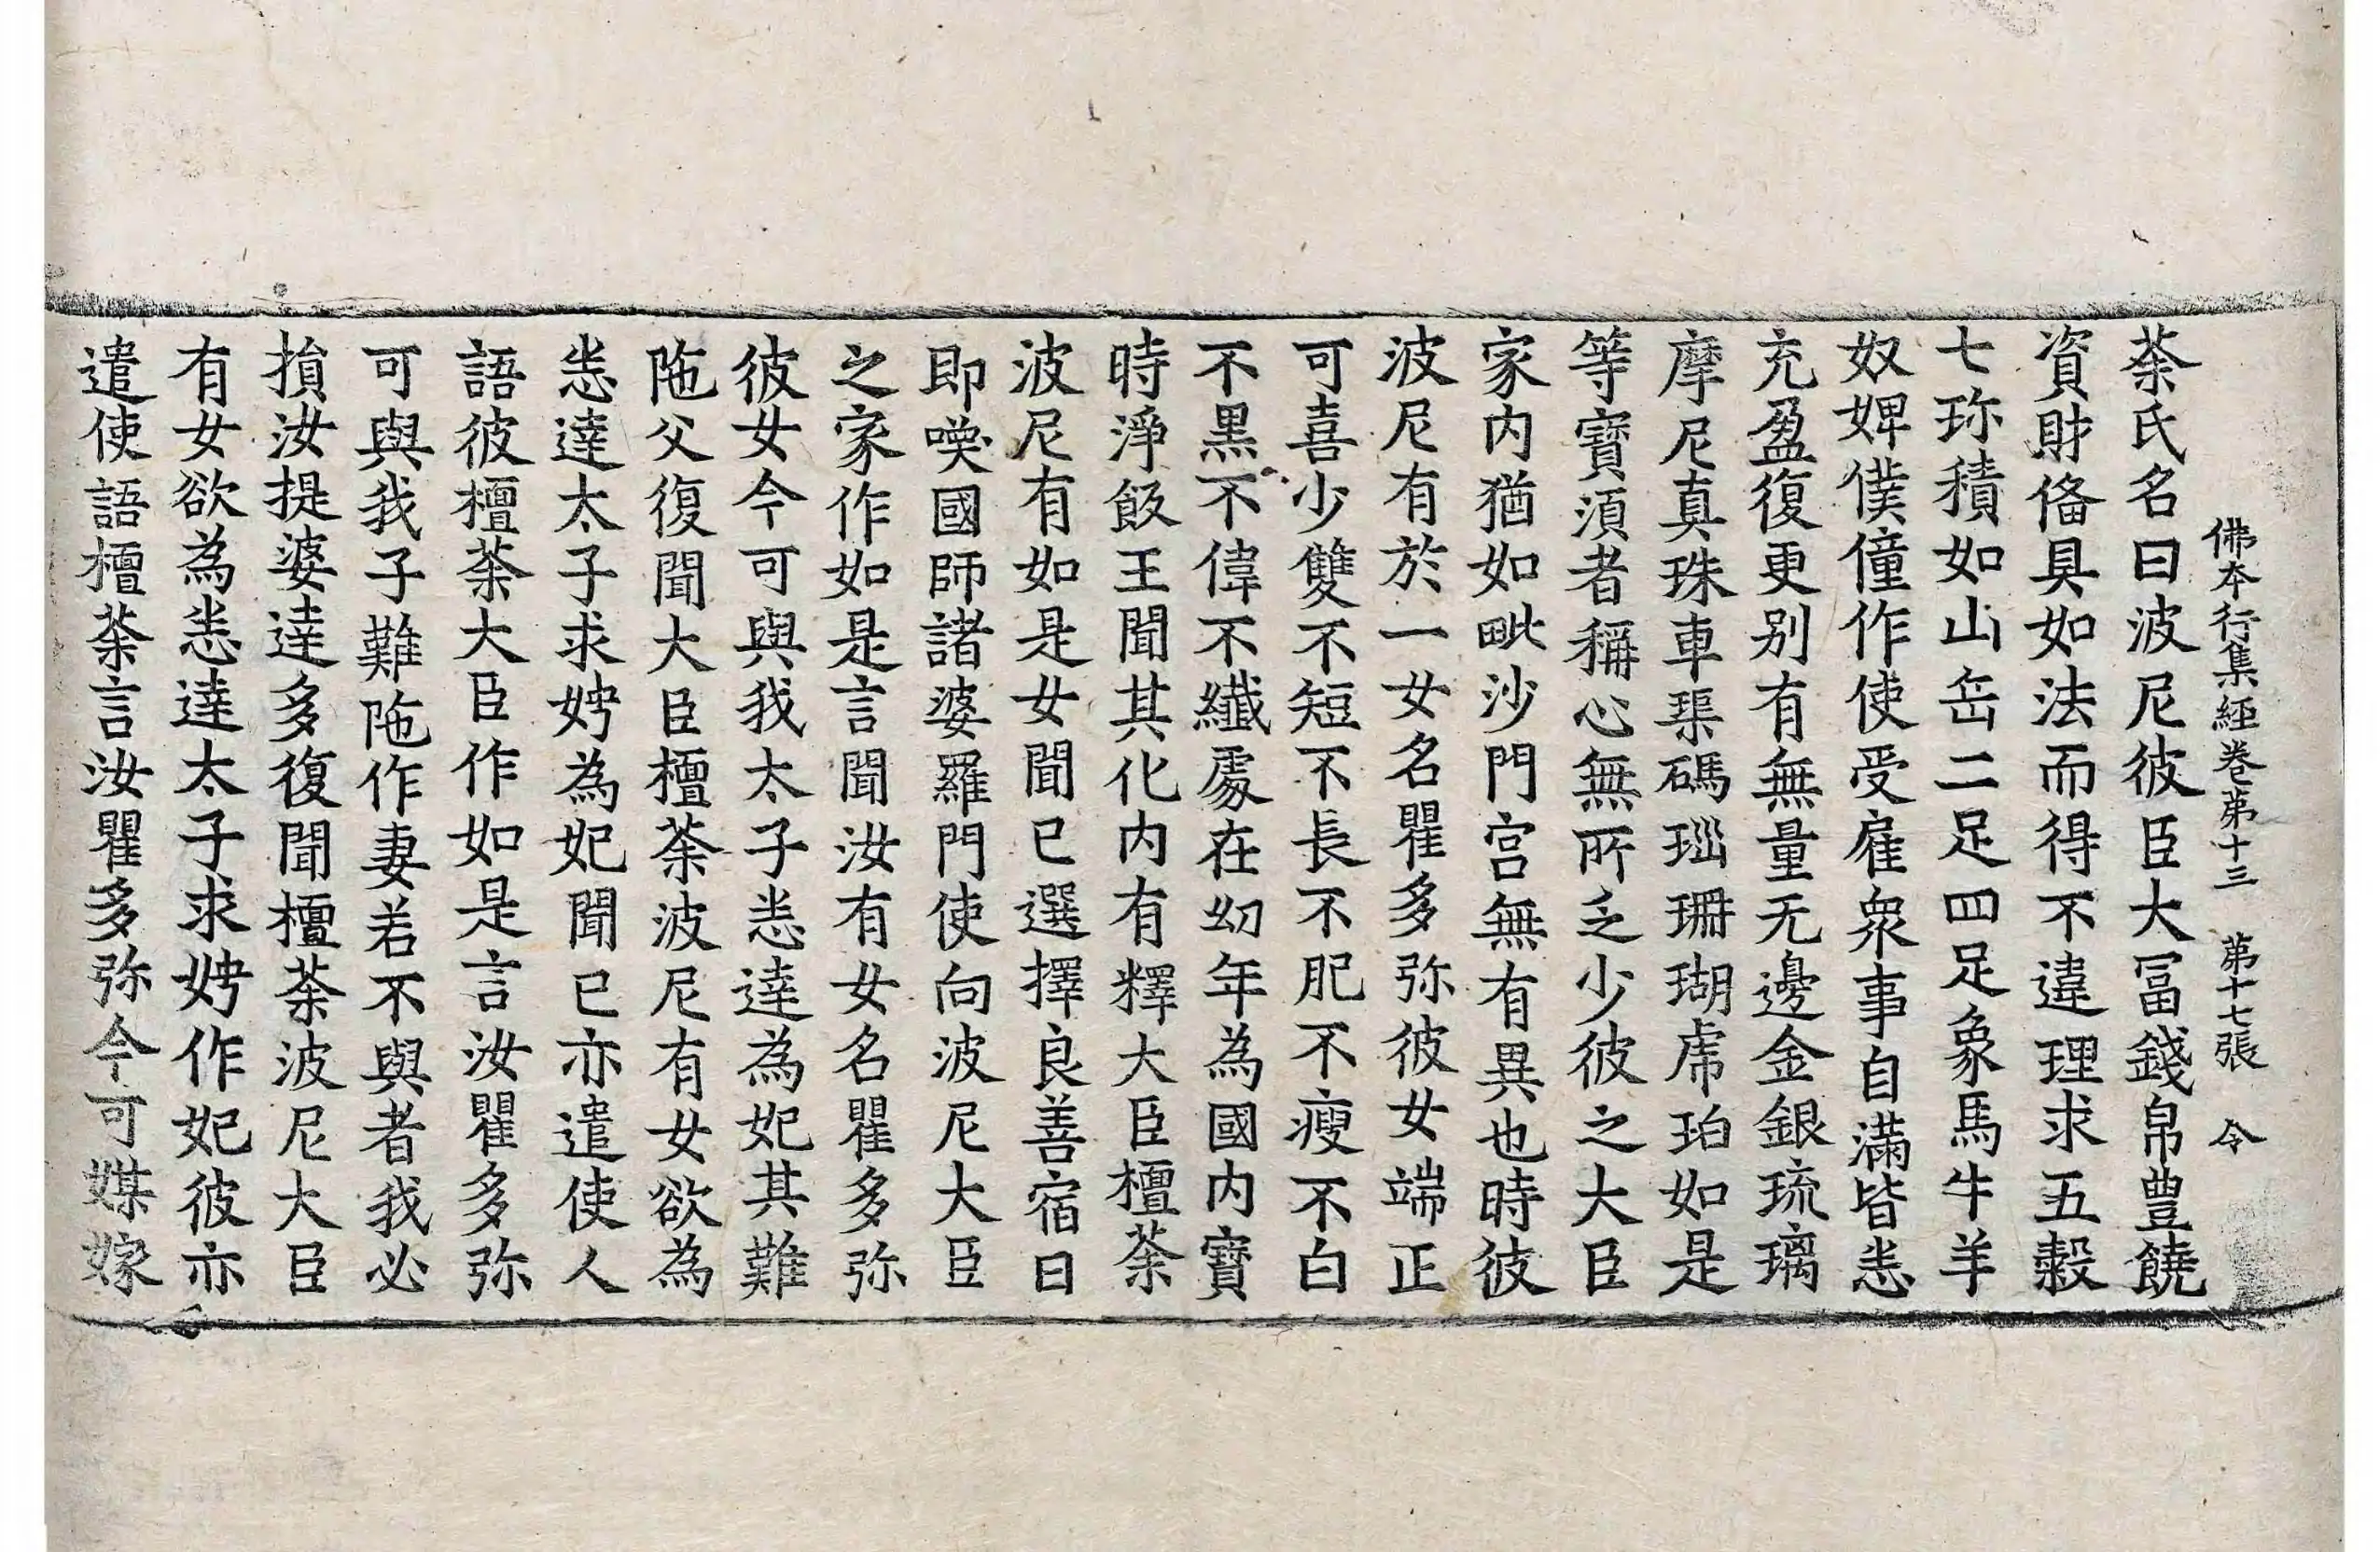 佛本行集經卷第十三 第十七張 令
荼氏名曰波尼彼臣大冨錢帛豊饒
資財俻具如法而得不違理求五穀
七珎積如山岳二足四足象馬牛羊
奴婢僕僮作使受雇衆事自滿皆悉
充盈復更別有無量无邊金銀琉璃
摩尼真珠車𤦲碼瑙珊瑚虎珀如是
等寶須者稱心無所乏少彼之大臣
家内猶如毗沙門宫無有異也時彼
波尼有於一女名瞿多弥彼女端正
可喜少雙不短不長不肥不瘦不白
不黒不偉不纖處在㓜年為國内寶
時淨飯王聞其化内有釋大臣檀荼
波尼有如是女聞已選擇良善宿日
即喚國師諸婆羅門使向波尼大臣
之家作如是言聞汝有女名瞿多弥
彼女今可與我太子悉達為妃其難
陁父復聞大臣檀荼波尼有女欲為
悉達太子求娉為妃聞已亦遣使人
語彼檀荼大臣作如是言汝瞿多弥
可與我子難陁作妻若不與者我必
損汝提婆達多復聞檀荼波尼大臣
有女欲為悉達太子求娉作妃彼亦
遣使語檀荼言汝瞿多弥今可媒嫁